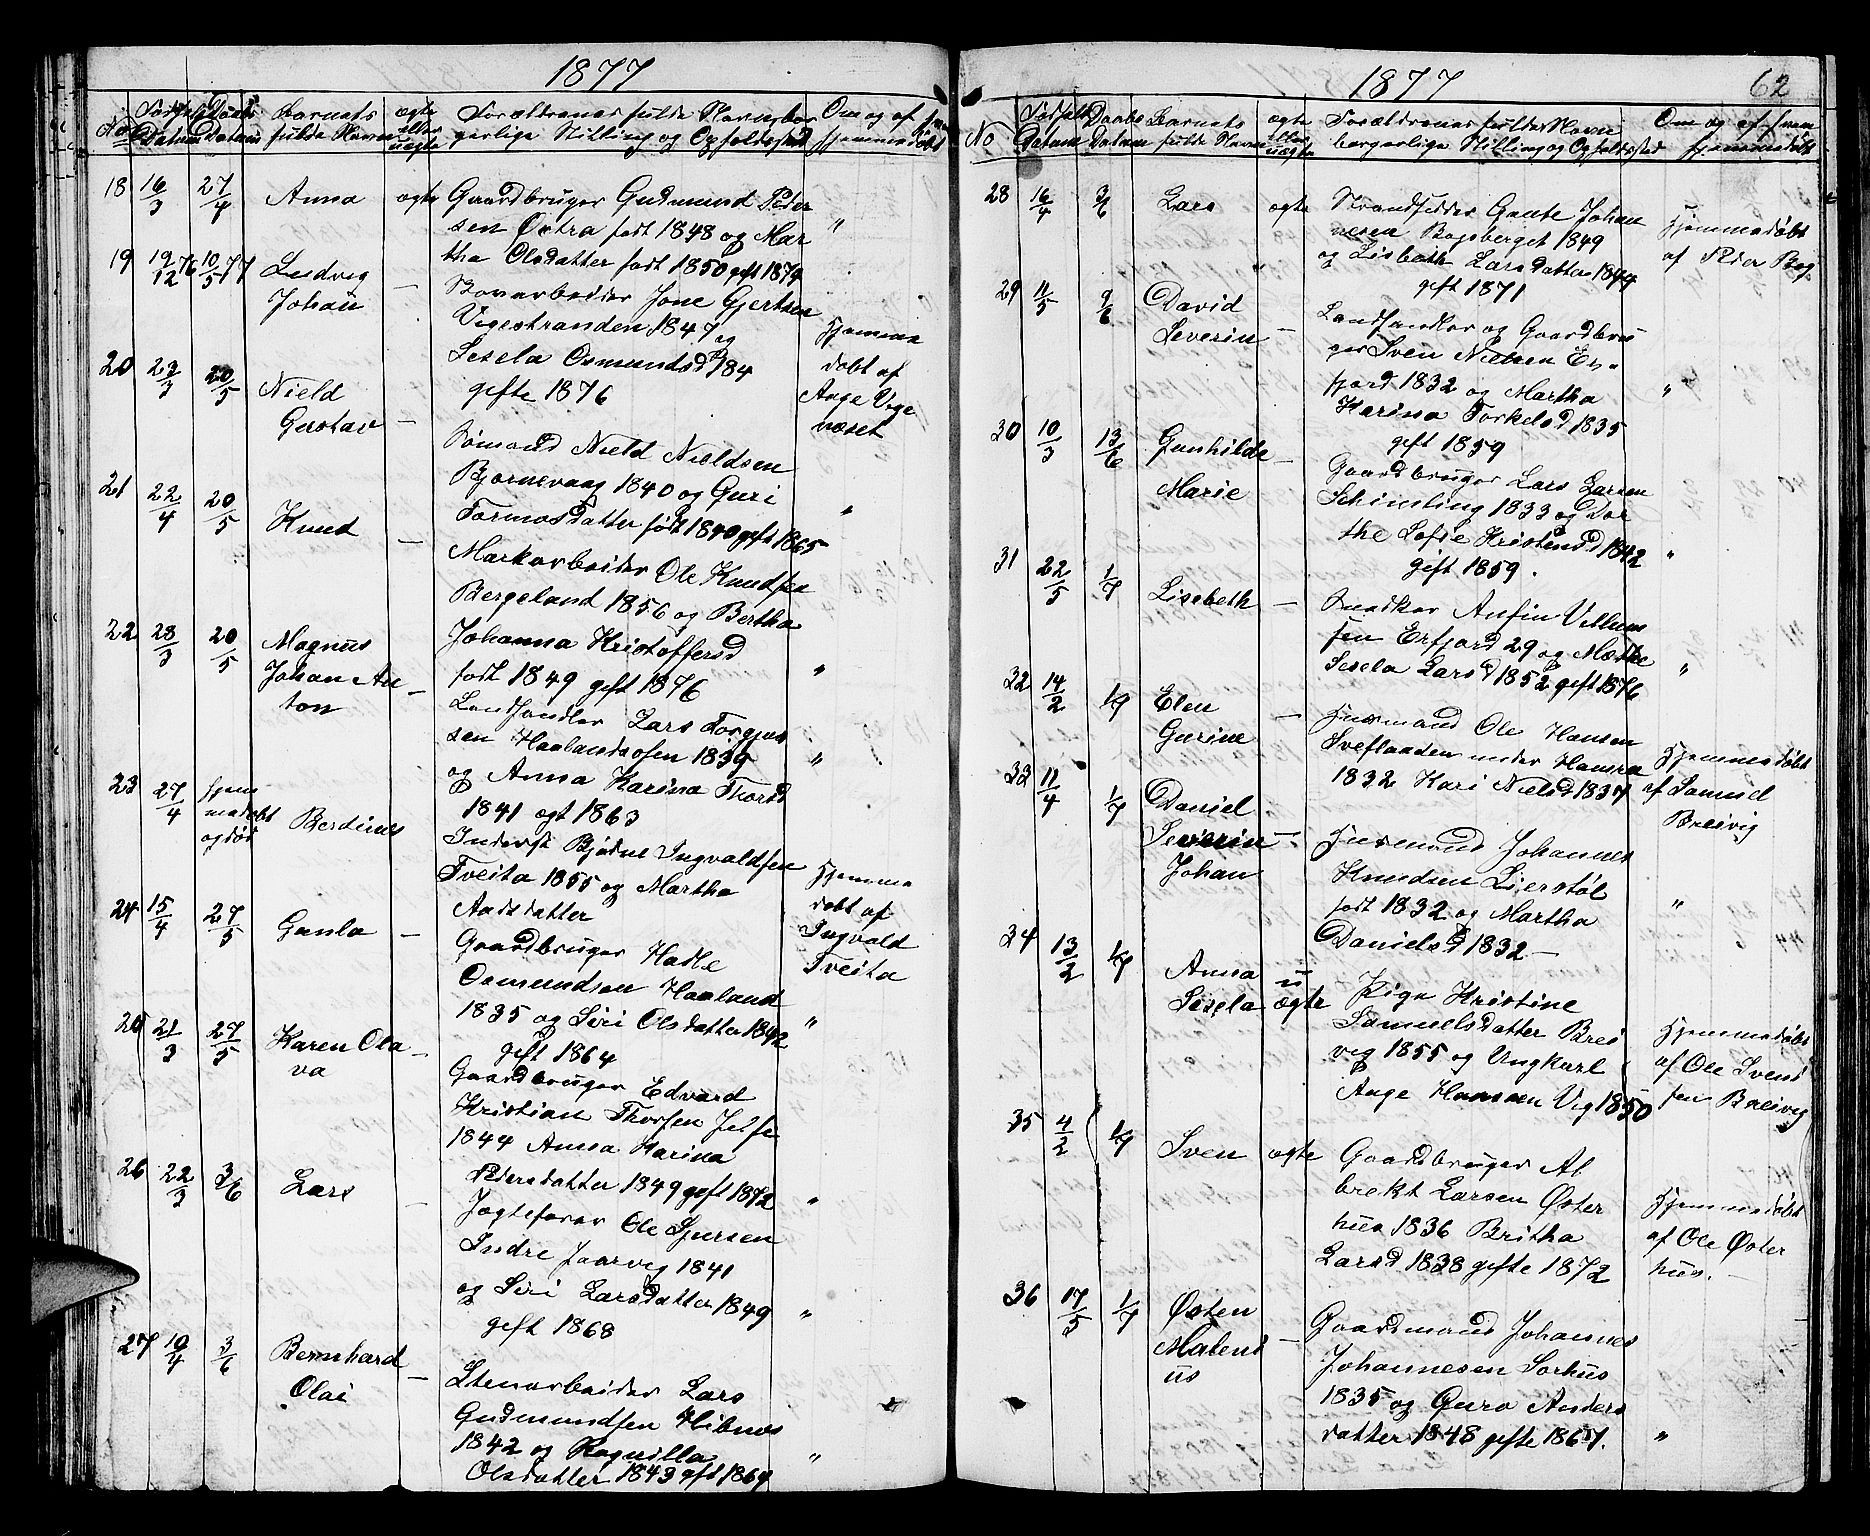 1877
No Fødsels Datum Daabs Datum Barnets fulde Navn ægte eller uægte Forældrenes fulde Navn, bor
gerlige Stilling og Opholdssted Om og af hvem hjemmedøbt
18 16/3 27/4 Anna ægte Gaardbruger Gudmund Peder
sen Østra født 1848 og Mar "
tha Olsdatter født 1850 gift 1874
19 19/12 76 10/5 77 Ludvig
Johan — Jone Gjertsen
Vigestranden 1847 og
Sesela Osmundsd 184
gefte 1876
Hjemme
døbt af
Aage Vige
næset
20 22/3 20/5 Nield
Gustav — Sømand Nield Nieldsen
Bjørnevaag 1840 og Guri
Tormosdatter født 1840 gift 1865 "
21 22/4 20/5 Knud — Markarbeider Ole Knudsen
Bergeland 1856 og Bertha
Johanna Kristoffersd
født 1849 gift 1876 "
22 28/3 20/5 Magnus
Johan An —
ton
Landhandler Lars Torgjus
sen 1839 "
og Anna Karina Thorsd
1841 ægt 1863
23 27/4 hjem
medøbt
og død Berdines Inderst Bjødne Ingvaldsen
Tveita 1855 og Martha
Aadsdatter
Hjemme
døbt af
Ingvald
Tveita
24 15/4 27/5 Gunla — Gaardbruger Hadle
Osmundsen Haaland
1835 og Siri Olsdatter 1842 "
gift 1864
25 21/3 27/5 Karen Ola —
va
Gaardbruger Edvard
Kristian Thorsen Jelse
1844 Anna Karina
Pedersdatter 1849 gift 1872 "
26 22/3 3/6 Lars — Jagtefører Ole Sjursen
Indre Jaarvig 1841
og Siri Larsdatter 1849 "
gift 1868
27 10/4 3/6 Bernhard —
Olai
Stenarbeider Lars
Gudmundsen Hibnes
1842 og Ragnilla "
Olsdatter 1843 gift 1864
1877 62
No Fødsels Datum Daabs Datum Barnets fulde Navn ægte eller uægte Forældrenes fulde Navn
borgerlige Stilling og Opholdssted Om og af hvem hjemmedøbt
28 16/4 3/6 Lars ægte Strandsidder Gaute Johan
nesen Bogsberget 1849
og Lisbeth Larsdatter 1844
gift 1871
Hjemmedøbt
af Peder Bog.
29 11/5 9/6 David
Severin — Landhandler og Gaardbru
ger Sven Nielsen Er
fjord 1832 og Martha "
Karina Torkelsd 1835
gift 1859
30 10/3 13/6 Gunhilde —
Marie
Gaardbruger Lars Larsen
Schimling 1833 og Dor
the Sofie Kristensd 1842 "
gift 1859.
31 22/5 1/7 Lisebeth — Snedker Anfin Villum
sen Erfjord 29 og Mætte
Sesela Larsd 1852 gift 1876 "
32 14/2 1/7 Elen —
Gurine
Husmand Ole Hansen
under Hamra
1832 Kari Nielsd 1837
Hjemmedøbt
af Samuel
Breivig
33 11/4 1/7 Daniel
Severin —
Johan
Husmand Johannes
Knudsen Lierstøl
født 1832 og Martha "
Danielsd 1832 —
34 13/2 1/7 Anna u
Sesela ægte Pige Kristine
Samuelsdatter Brei
vig 1855 og Ungkarl
Aage Hansen Vig 1850
Hjemmedøbt
af Ole Svend
sen Breivig
35 4/2 1/7 Sven ægte Gaardbruger Al
brekt Larsen Øster
hus 1836 Britha
Larsd 1838 gefte 1872
Hjemmedøbt
af Ole Øster
hus. —
36 17/5 1/7 Østen
Malend —
us
Gaardmand Johannes
Johannesen Sorhus
1835 og Guro Anders
datter 1848 gefte 1867. "